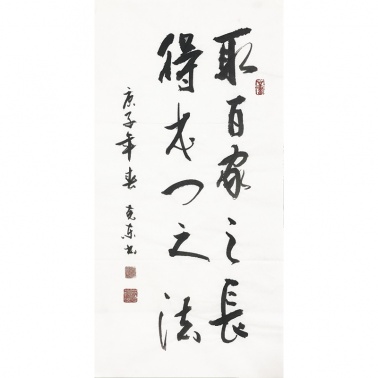 取百家之長
得门之法
庚子年春 克东书